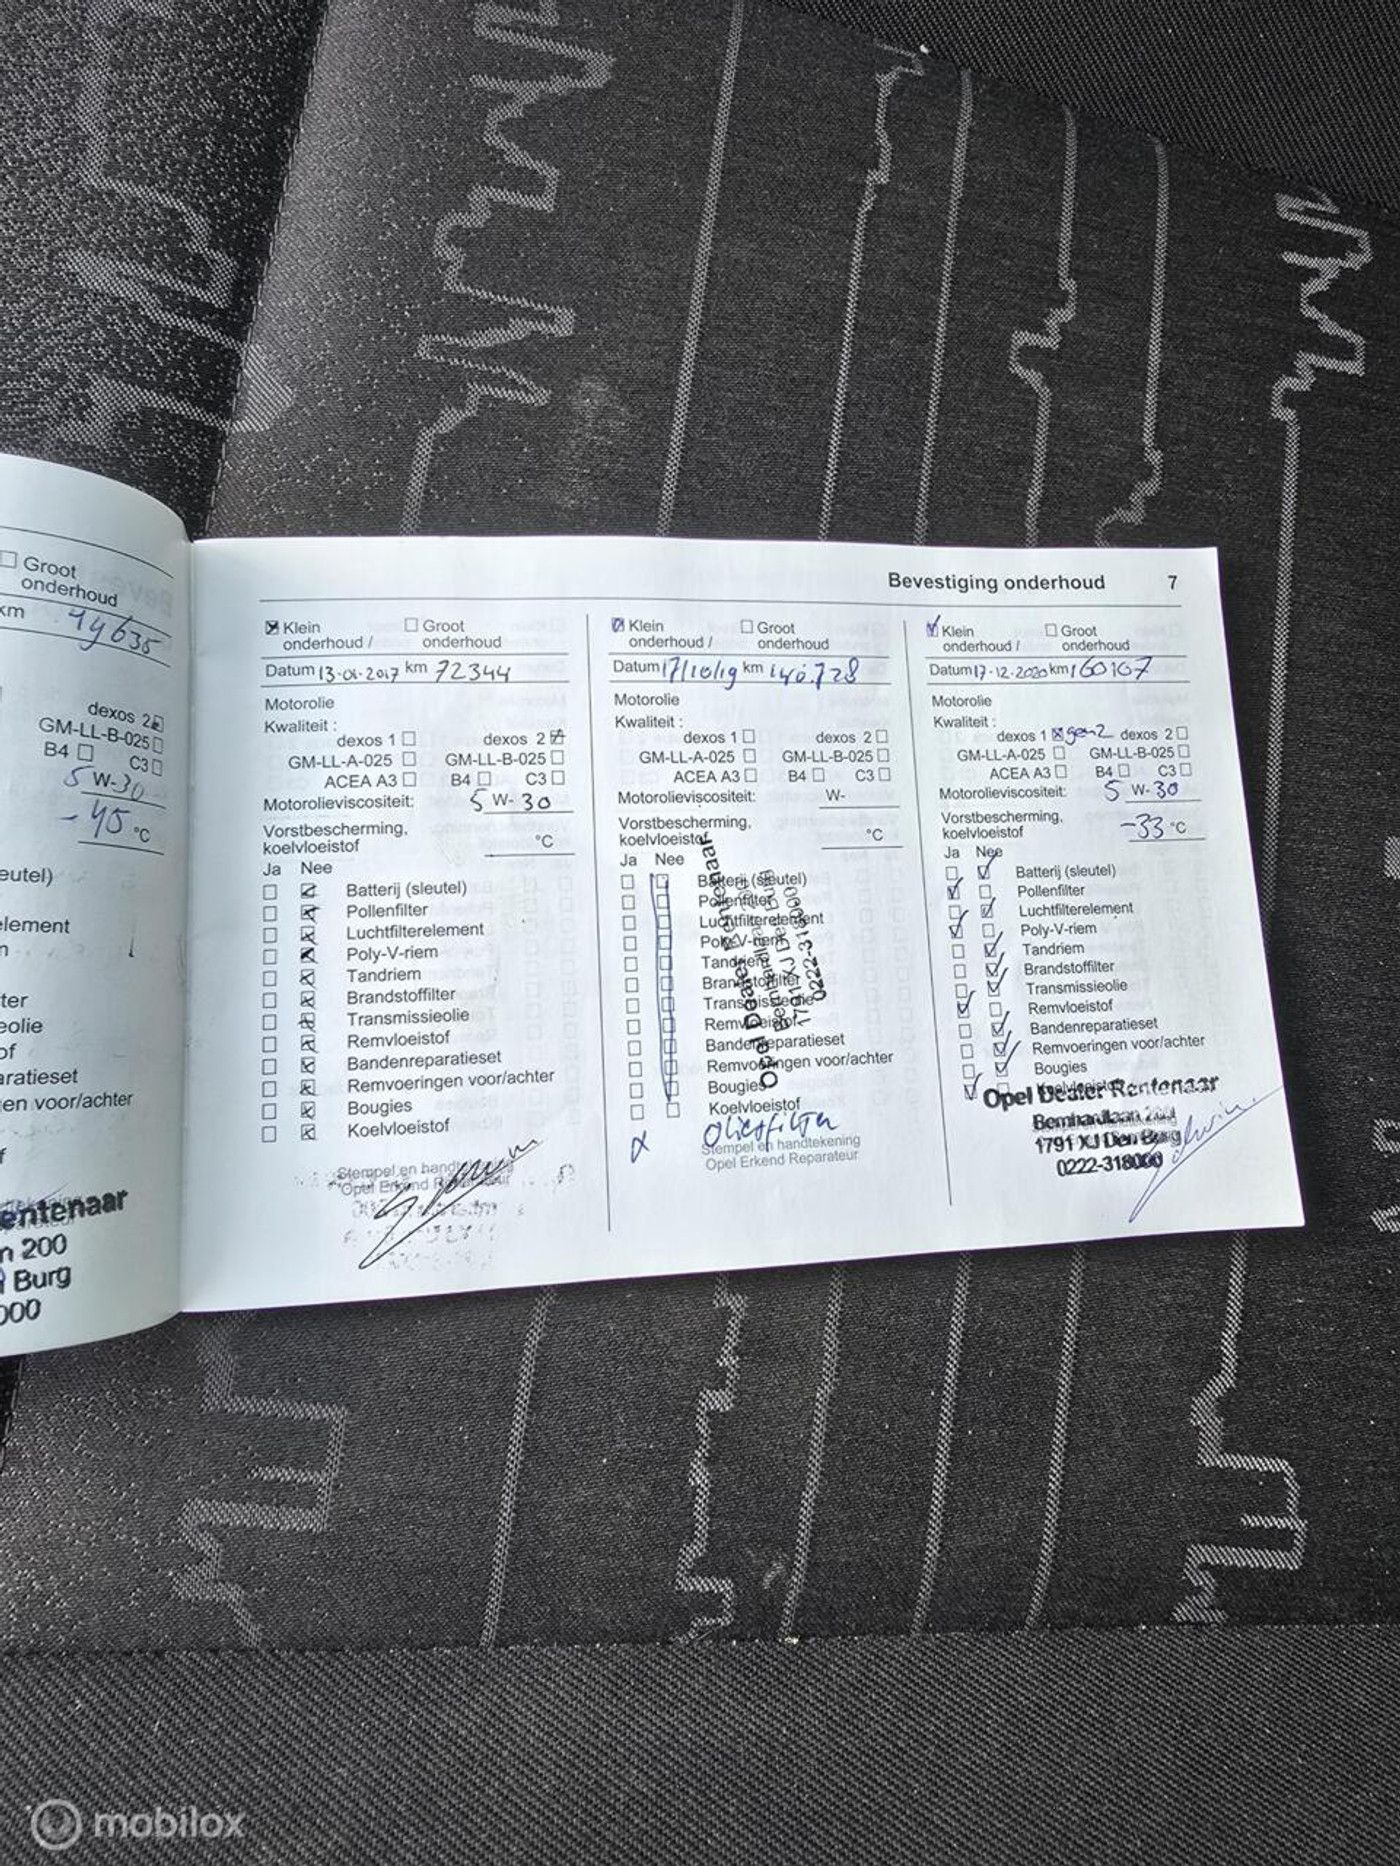 Groot
onderhoud
km 44635
dexos 2
GM-LL-B-025
B4 C3
5 W-30
-45 °C
eutel)
element
n
ter
eolie
of
aratieset
en voor/achter
f
entenaar
n 200
Burg
000
Bevestiging onderhoud 7
Klein Groot
onderhoud / onderhoud
Datum 13-01-2017 km 72344
Motorolie
Kwaliteit :
dexos 1 dexos 2
GM-LL-A-025 GM-LL-B-025
ACEA A3 B4 C3
Motorolieviscositeit: 5 W- 30
Vorstbescherming,
koelvloeistof °C
Ja Nee
Batterij (sleutel)
Pollenfilter
Luchtfilterelement
Poly-V-riem
Tandriem
Brandstoffilter
Transmissieolie
Remvloeistof
Bandenreparatieset
Remvoeringen voor/achter
Bougies
Koelvloeistof
Stempel en handtekening
Opel Erkend Reparateur
Klein Groot
onderhoud / onderhoud
Datum 17/10/19 km 140.728
Motorolie
Kwaliteit :
dexos 1 dexos 2
GM-LL-A-025 GM-LL-B-025
ACEA A3 B4 C3
Motorolieviscositeit: W-
Vorstbescherming,
koelvloeistof °C
Ja Nee
Batterij (sleutel)
Pollenfilter
Luchtfilterelement
Poly-V-riem
Tandriem
Brandstoffilter
Transmissieolie
Remvloeistof
Bandenreparatieset
Remvoeringen voor/achter
Bougies
Koelvloeistof
x Oliefilter
Stempel en handtekening
Opel Erkend Reparateur
Opel Dealer Rentenaar
1791 XJ Den Burg
0222-318000
Klein Groot
onderhoud / onderhoud
Datum 17-12-2020 km 160107
Motorolie
Kwaliteit :
dexos 1 gen2 dexos 2
GM-LL-A-025 GM-LL-B-025
ACEA A3 B4 C3
Motorolieviscositeit: 5 W- 30
Vorstbescherming,
koelvloeistof -33 °C
Ja Nee
Batterij (sleutel)
Pollenfilter
Luchtfilterelement
Poly-V-riem
Tandriem
Brandstoffilter
Transmissieolie
Remvloeistof
Bandenreparatieset
Remvoeringen voor/achter
Bougies
Koelvloeistof
Opel Dealer Rentenaar
Bernhardlaan 200
1791 XJ Den Burg
0222-318000
mobilox